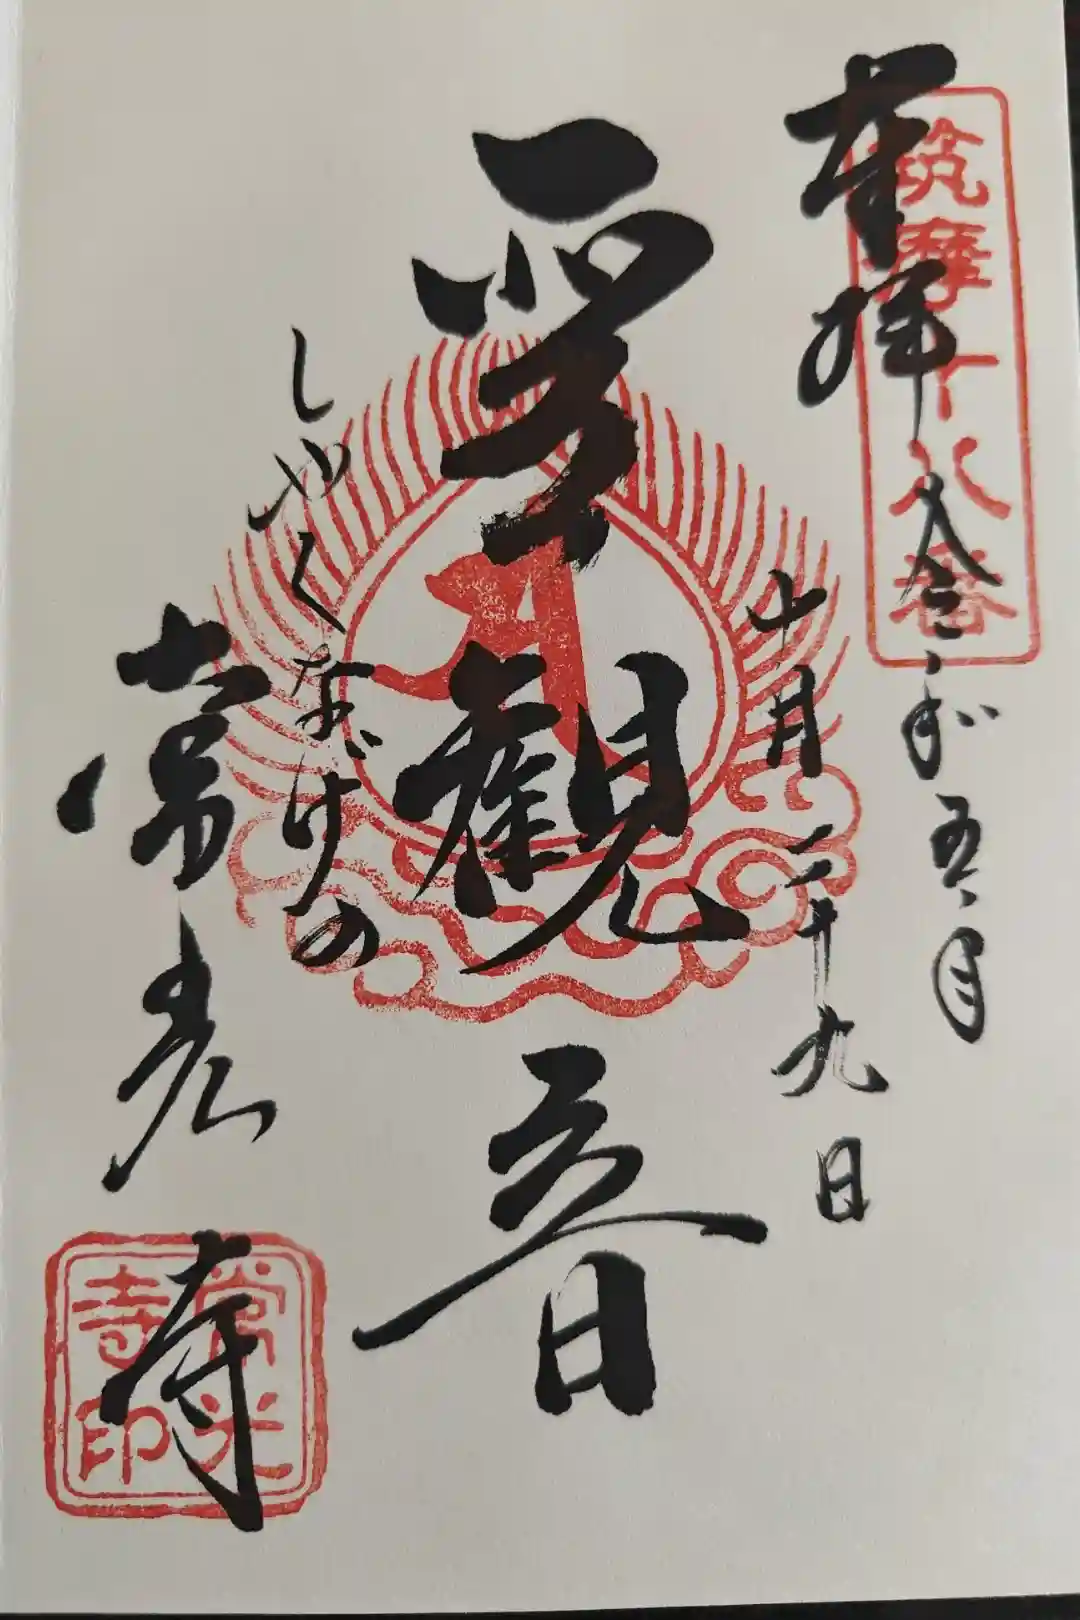 筑摩十八番
奉拝
令和五年
十月二十九日
観音
しやくなげの
常光寺
常光寺印